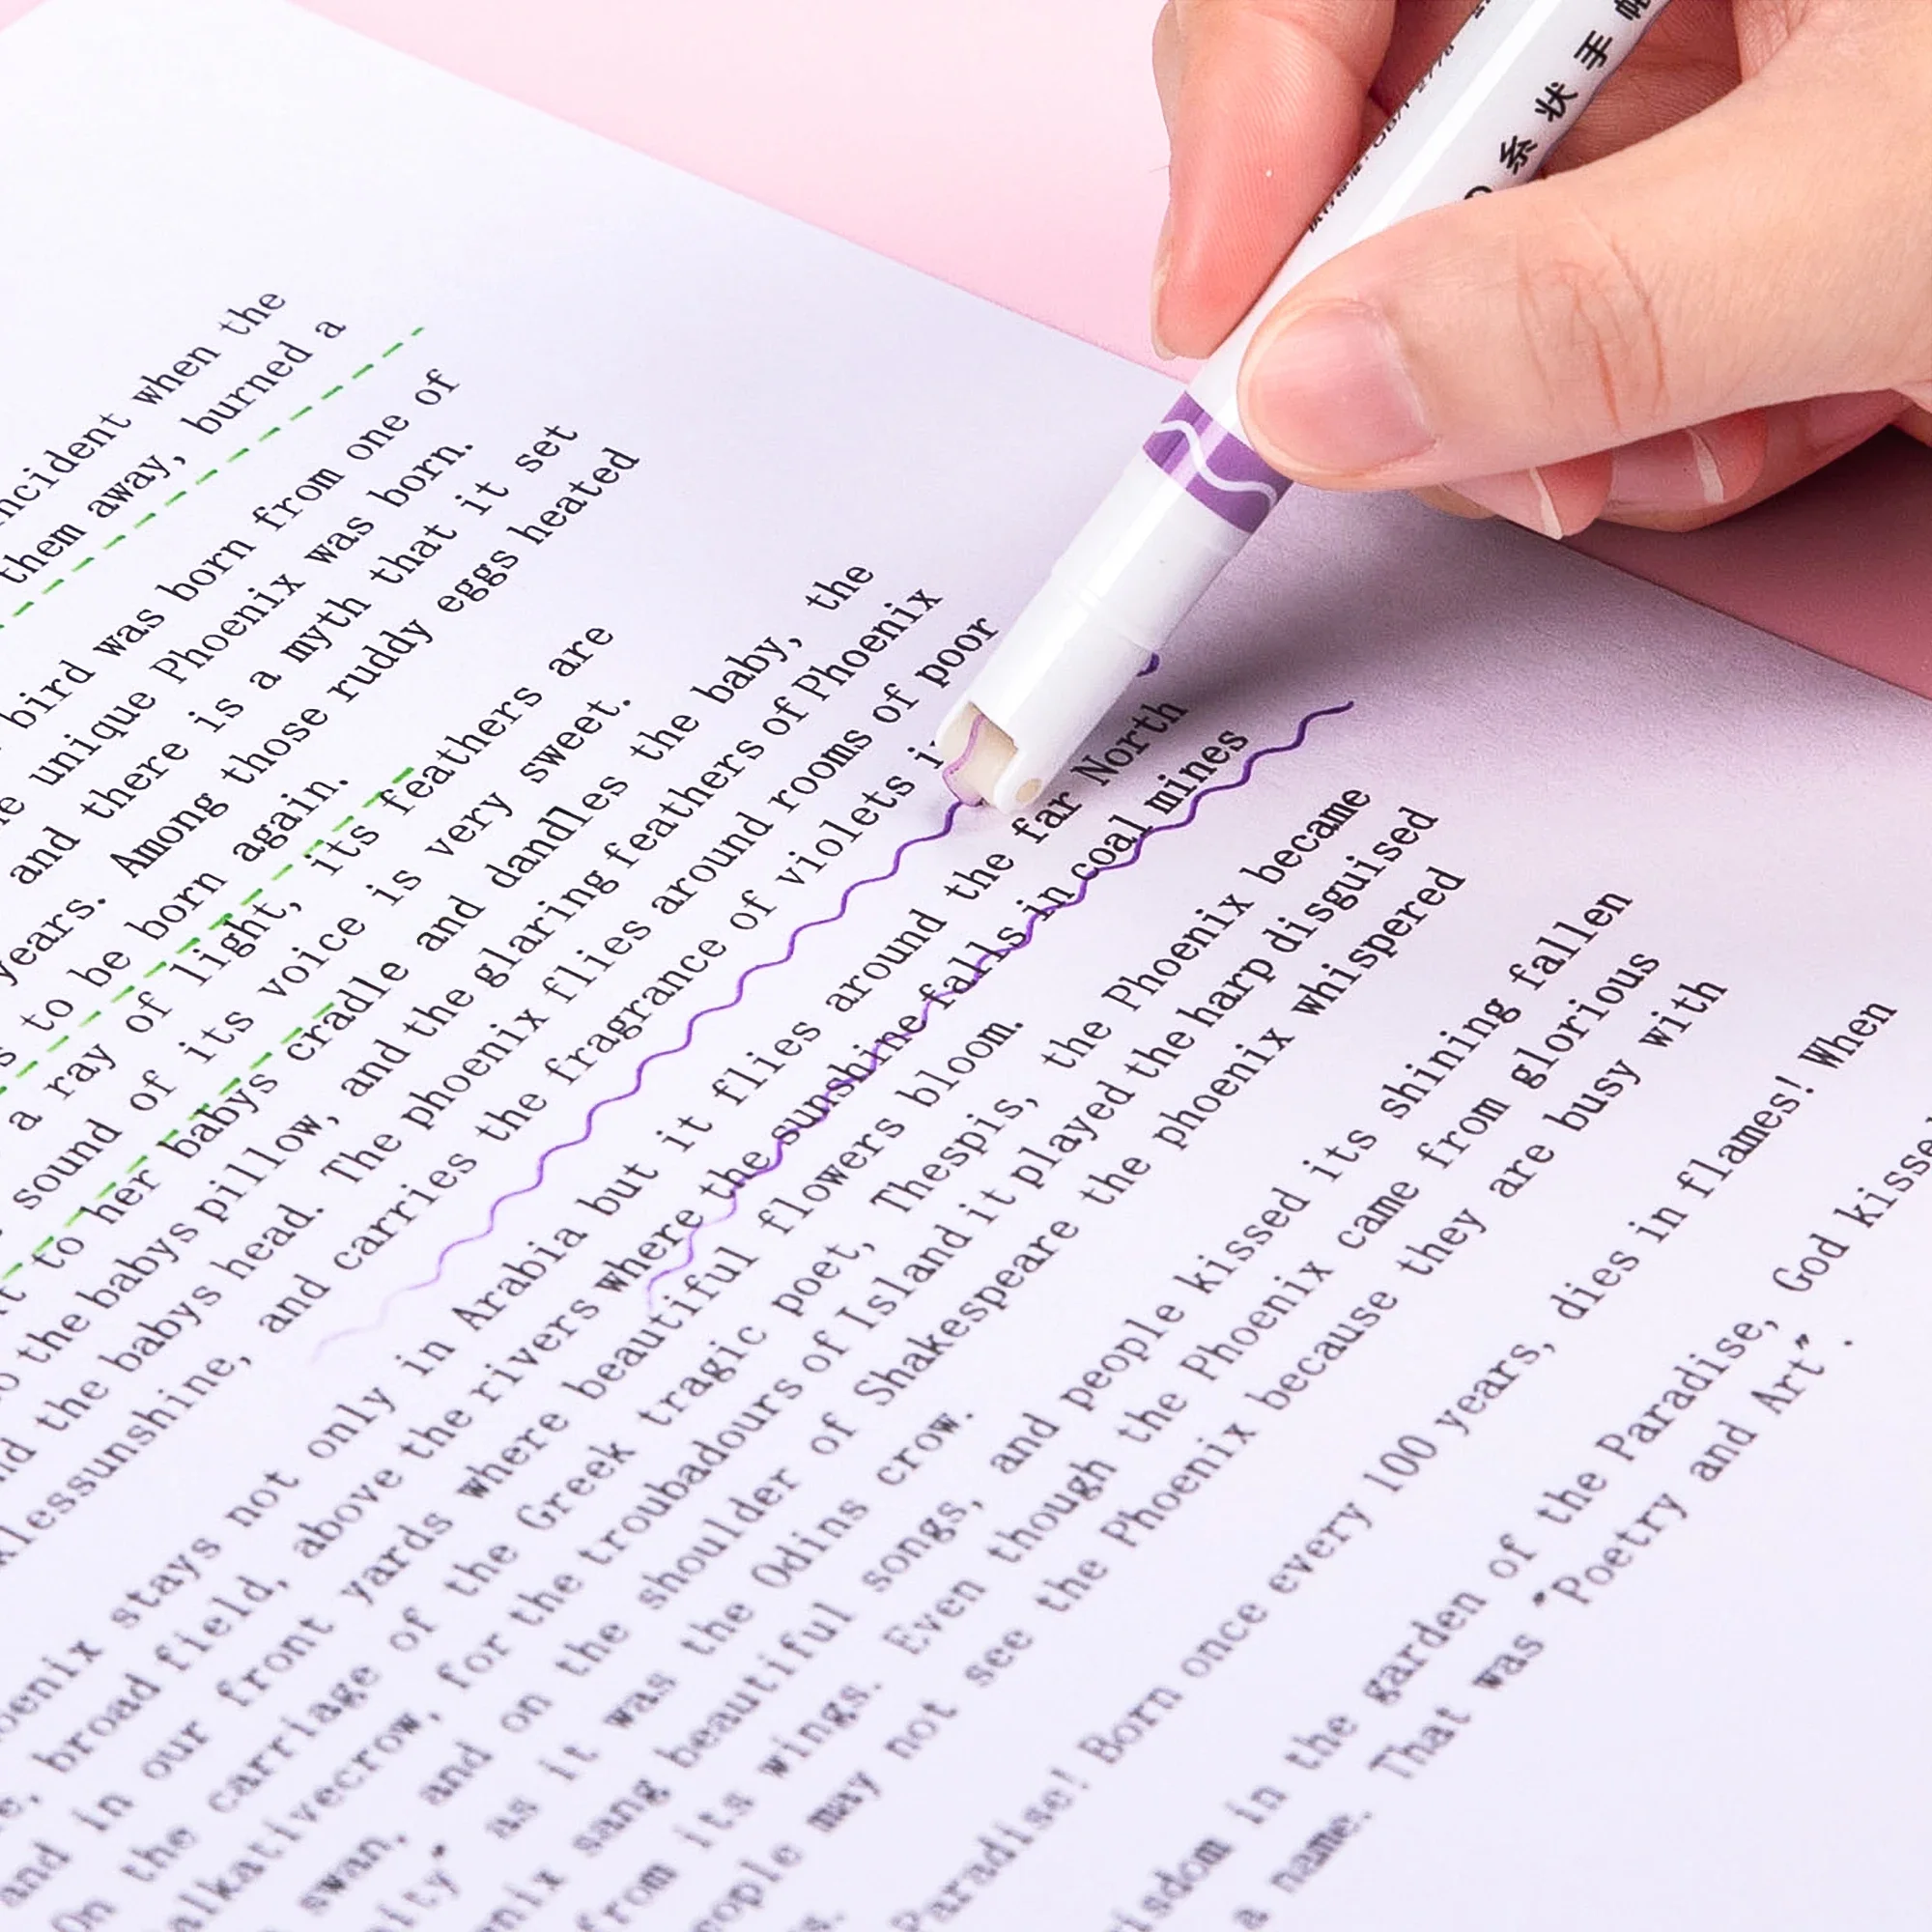 手 状 系
incident when the
them away, burned a
bird was born from one of
unique Phoenix was born.
and there is a myth that it set
years. Among those ruddy eggs heated
to be born again.
a ray of light, its feathers are
sound of its voice is very sweet.
to her babys cradle and dandles the baby, the
the babys pillow, and the glaring feathers of Phoenix
the babys head. The phoenix flies around rooms of poor
sunshine, and carries the fragrance of violets
stays not only in Arabia but it flies around the far North
broad field, above the rivers where the sunshine falls in coal mines
and in our front yards where beautiful flowers bloom.
On the carriage of the Greek tragic poet, Thespis, the Phoenix became
for the troubadours of Island it played the harp disguised
swan, and on the shoulder of Shakespeare the phoenix whispered
as it was the Odins crow.
sang beautiful songs, and people kissed its shining fallen
from its wings. Even though the Phoenix came from glorious
may not see the Phoenix because they are busy with
Paradise! Born once every 100 years, dies in flames! When
in the garden of the Paradise, God kissed
a name. That was "Poetry and Art".